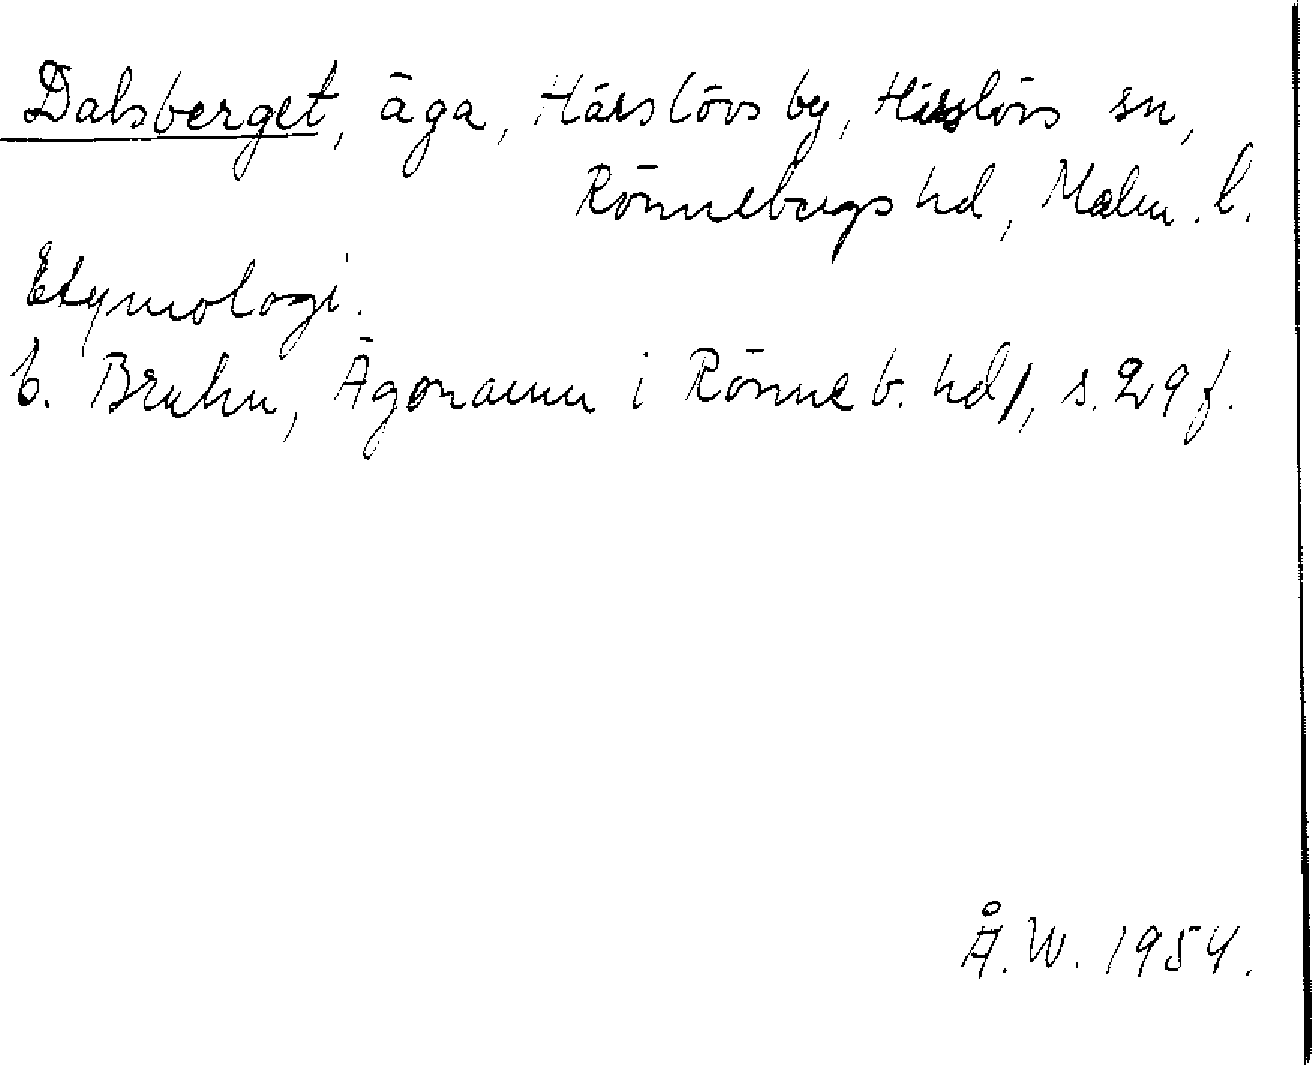 Dalsberget, äga, Härslövs by, Härslövs sn,
Rönnebergs hd, Malm. l.
Etymologi.
E. Bruhn, Ägonamn i Rönneb. hd/, s. 29 f.
Å. W. 1954.